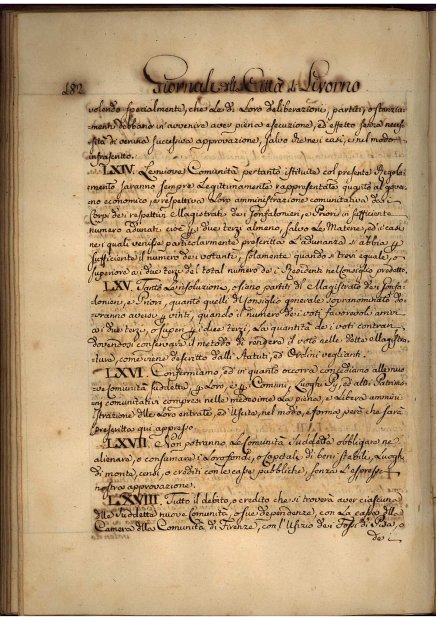 182 Giornale della Città di Livorno
volendo specialmente, che le di Loro deliberazioni, partiti, o stanzia-
menti debbano in avvenire aver piena esecuzione, ed effetto senza neces-
sità di veruna successiva approvazione, salvo che nei casi, e nel modo
infrascritto.
LXIV. Le nuove Comunità pertanto istituite col presente Regola-
mento saranno sempre legittimamente rappresentate quanto al gover-
no economico, e respettiva Loro amministrazione comunitativa dai
Corpi dei respettivi Magistrati dei Gonfalonieri, e Priori in sufficiente
numero adunati cioè per due terzi almeno, salvo le Materie, ed i casi
nei quali venisse particolarmente prescritto l'adunanza si abbia per
sufficiente il numero dei votanti, solamente quando si trovi eguale, o
superiore ai due terzi del total numero dei Residenti nel Consiglio predotto.
LXV. Tanto le risoluzioni, o sieno partiti del Magistrato dei Gonfa-
lonieri, e Priori, quanto quelli del Consiglio generale Sopranominato do-
vranno aversi per vinti, quando il numero dei voti favorevoli arrivi
ai due terzi, o superi per due terzi, la quantità dei voti contrari
dovendosi conservare il metodo di rendere il voto nelle dette Magistra-
ture, come viene descritto dalli Statuti, ed Ordini veglianti.
LXVI. Confermiamo, ed in quanto occorra concediamo alle nuo-
ve Comunità suddette per Loro, e per i Comuni, Luoghi Pij, ed altri Patrimo-
ni comunitativi compresi nelle medesime la piena, e libera ammini-
strazione delle Loro entrate, ed Uscite, nel modo, e forma però che sarà
prescritta qui appresso.
LXVII. Non potranno le Comunità Suddette obbligare ne
alienare, o consumare i loro fondi, o capitali di beni stabili, Luoghi
di monte, censi, o crediti con le casse pubbliche, senza l'espressa
nostra approvazione.
LXVIII. Tutto il debito, o credito che si troverà aver ciascuna
delle Suddette nuove Comunità, o sue dependenze, con la cassa della
Camera della Comunità di Firenze, con l'Ufizio dei Fossi di Pisa, o
dei